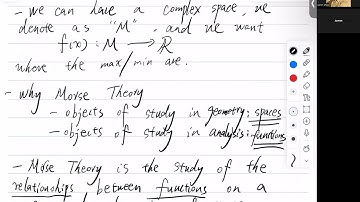 - we can have a complex space, we
denote as "M", and we want
f(x) : M → ℝ
where the max/min are.
- why Morse Theory
- objects of study in geometry: spaces
- objects of study in analysis: functions
- Morse Theory is the study of the
relationships between functions on a